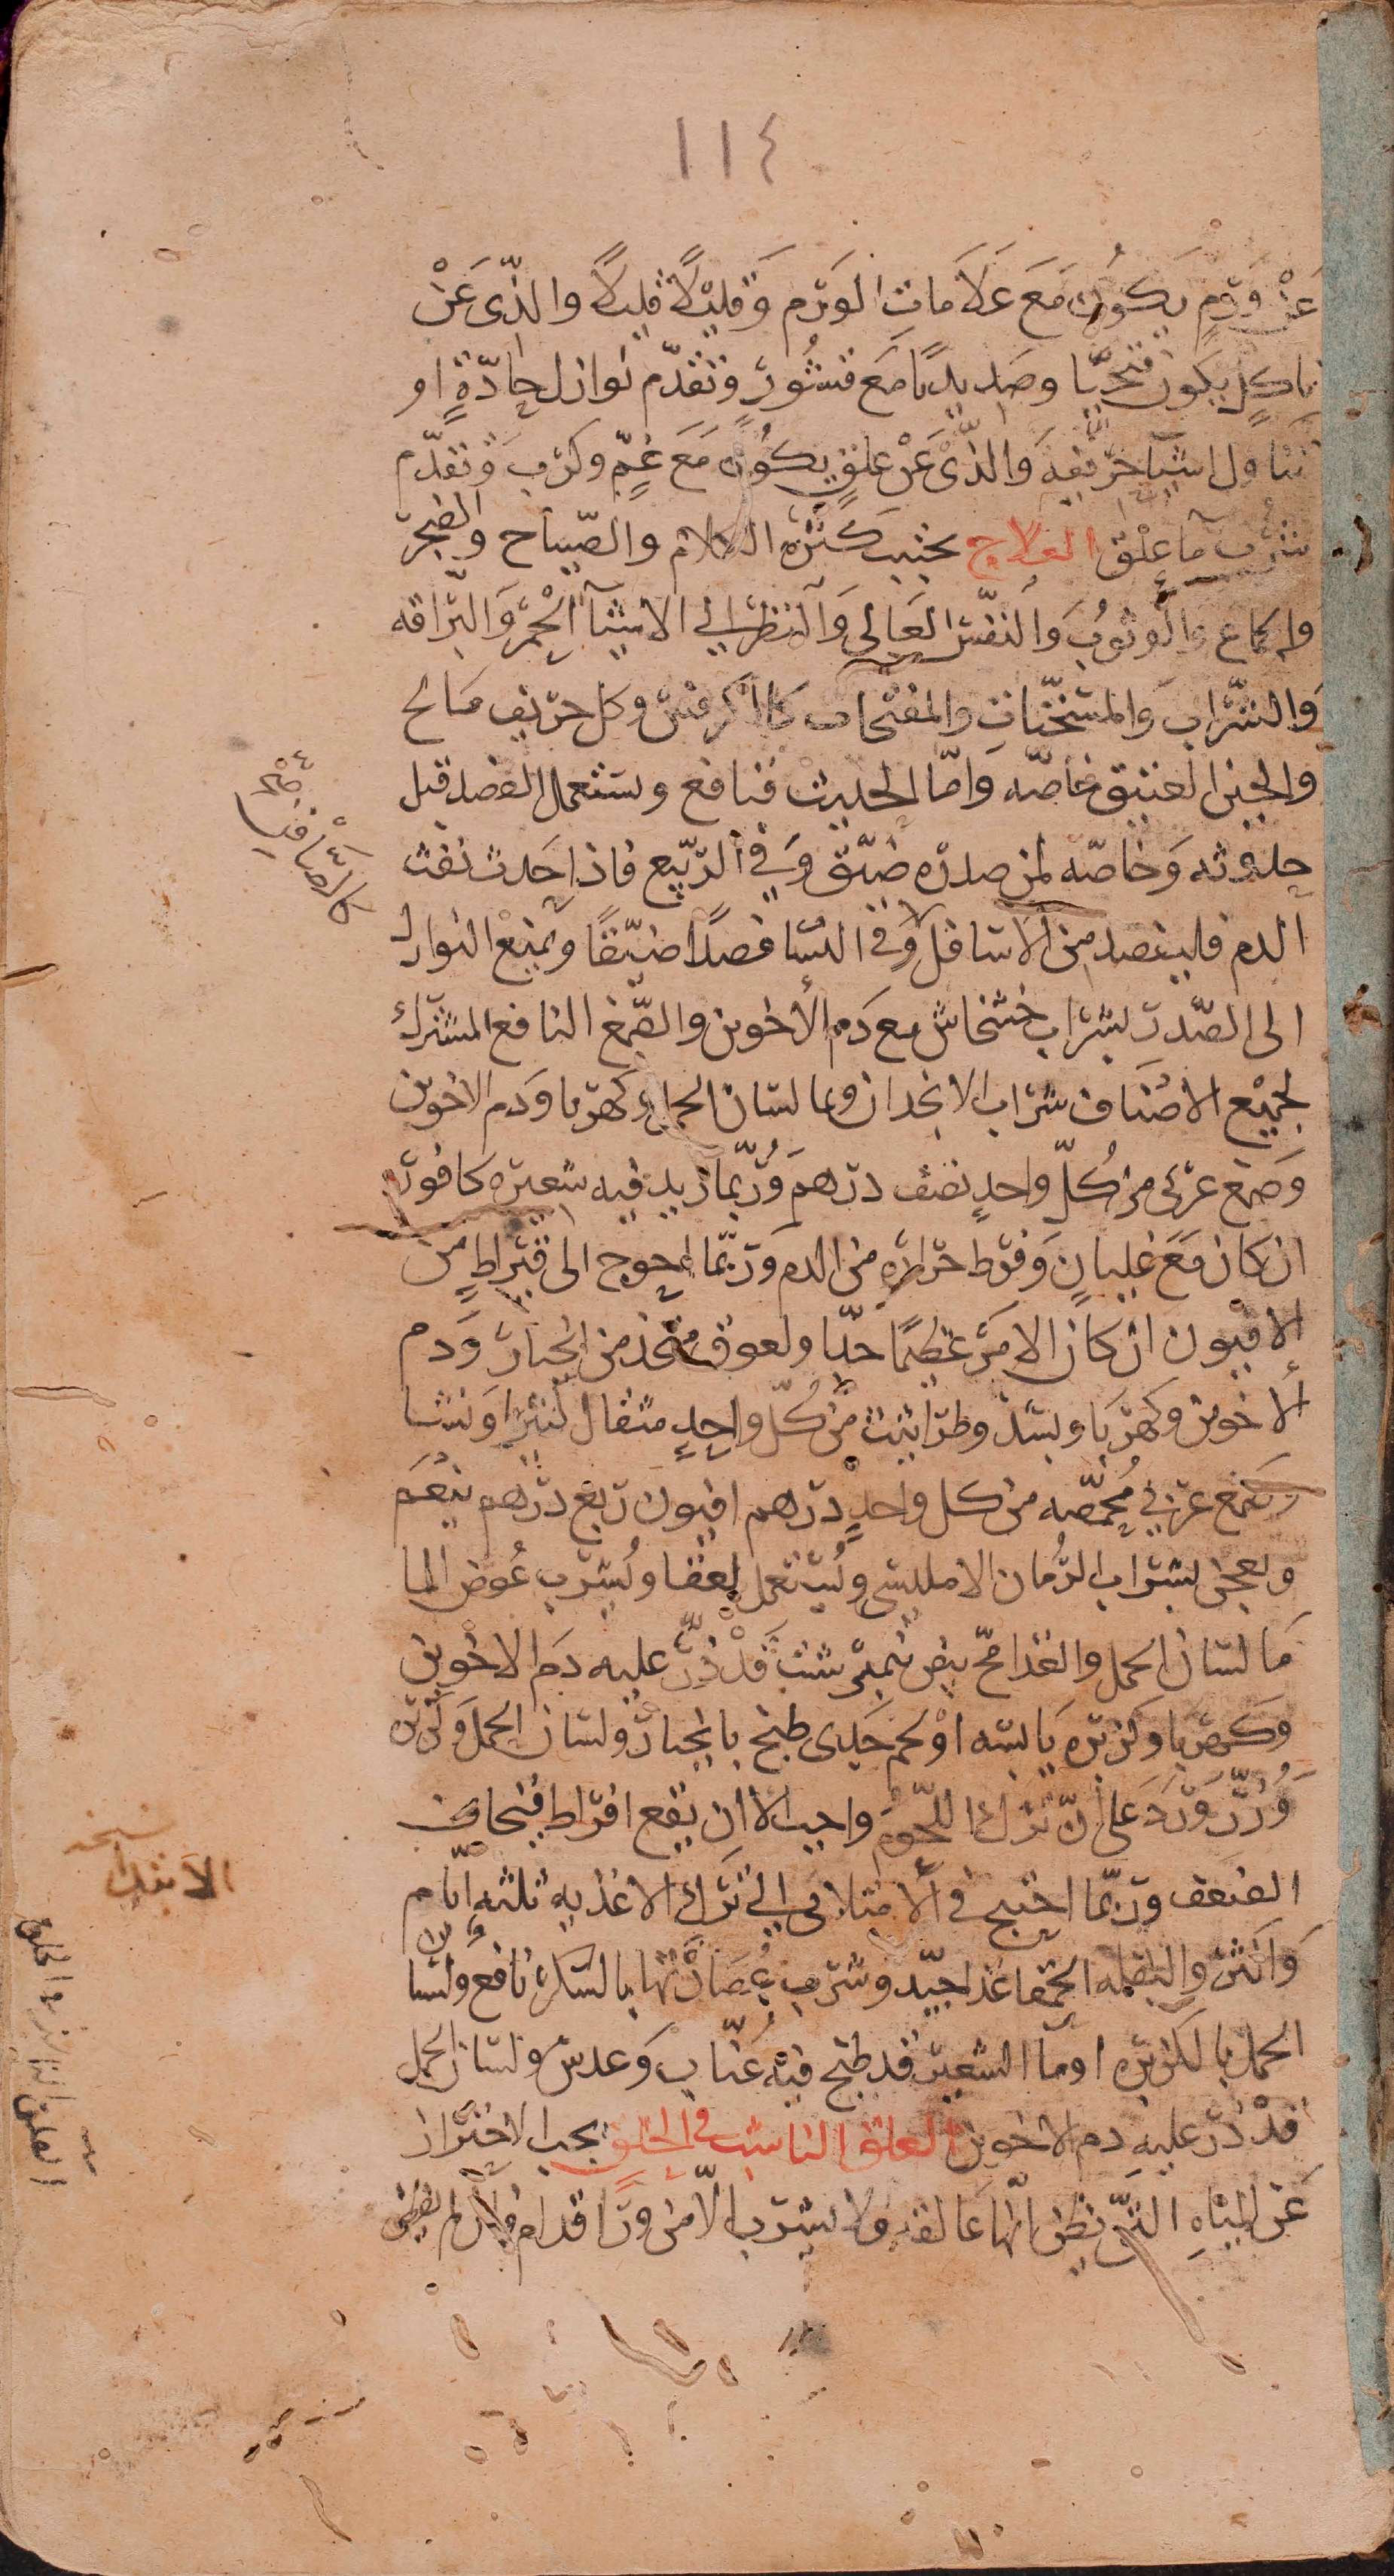 ١١٤
عَنْ وَرَمٍ يَكُونُ مَعَ عَلَامَات الوَرَم وَقليلاً قليلاً والذّى عَنْ
تاكلٍ يكون قيحيّا وصَديديًا مَع قشُورٍ وتقدّم نوازل حادّةٍ او
تناول اشيآ حرّيفه وَالذّى عَنْ علقٍ يكون مَعَ غمٍّ وكرب وَتقدّم
شرب مآ علق العلاج يجتنب كثرة الكلام والصّياح والضجر
والجماع والوثوبُ وَالنفّس العَالى وَالنظر الي الاشيآ الحُمْر وَالبرّاقه
وَالشرّاب وَالمسَخّنات والمفتحات كالكرفس وكل حرّيف مَالح
والجبن العتيق خاصّه وَامّا الحديث فنافع ويستعمل الفصد قبل
حدوثه وَخاصّه لمن صدره ضيّق وَفي الربّيع فاذا حَدث نفث
الدم فليفصد من الاسَافل وَفى النسَا فصدًا ضيّقًا ويمنع النوازل
الى الصّدر بشراب خشخاش مع دَم الأخوين والصّمغ النافع المشترك
لجميْع الاصْناف شرَاب الانجدان وما لسَان الحمل وكهربا وَدم الاخوين
وَصمغ عربى من كُلّ واحدٍ نصف درهم وَرُبّما زيد فيه شعيره كافور
ان كان مَعَ غليانٍ وَفرط حرَاره من الدم وَربّما احوج الى قيراطٍ من
الافيون ان كان الامر عَظيمًا جدّا ولعوق متخذ من انجبار وَدم
الأخوين وكهربَا وبسّد وطراثيث من كلّ واحِدٍ مثقال كثيرا وَنشا
وَصمغ عربي مُحمّصه من كل واحدٍ درهم افيون ربع درهم ينعَم
ويعجن بشراب الرُّمان الامليسى ويُستعمل لعقا ويُشرب عُوض الما
مَا لسَان الحمل والغذا مح بيض نيمبرشت قَدْ ذُرّ عليه دَم الاخوين
وكهربا وكزبره يَابسَه اوْ لحم جَدى طبخ بانجبار ولسَان الحمل وَكزبره
وَزر وَرد عَلى انّ ترك اللّحُوم واجب الا ان يقع افراط فيخاف
الضعف وربّما احتيج فى الامتلائى الي ترك الاغذيه ثلثه ايّام
وَاكثر وَالبقله الحمقا غذا جيّد وشرب عُصَارَتها بالسّكر نافع ولسَان
الحمل بالكزبره اوما الشعير قد طبخ فيْه عُنّاب وَعدس ولسَان الحمل
قدْ ذرّ عليه دم الاخوين العلق الناشب فى الحلق يجب الاحترَاز
عَن الميَاهِ التّى يظن انّها عَالقه ولا يشرب الّا من ورا فدام فان لم
نسخه
الانقدا
العلق الناشب فى الحلق